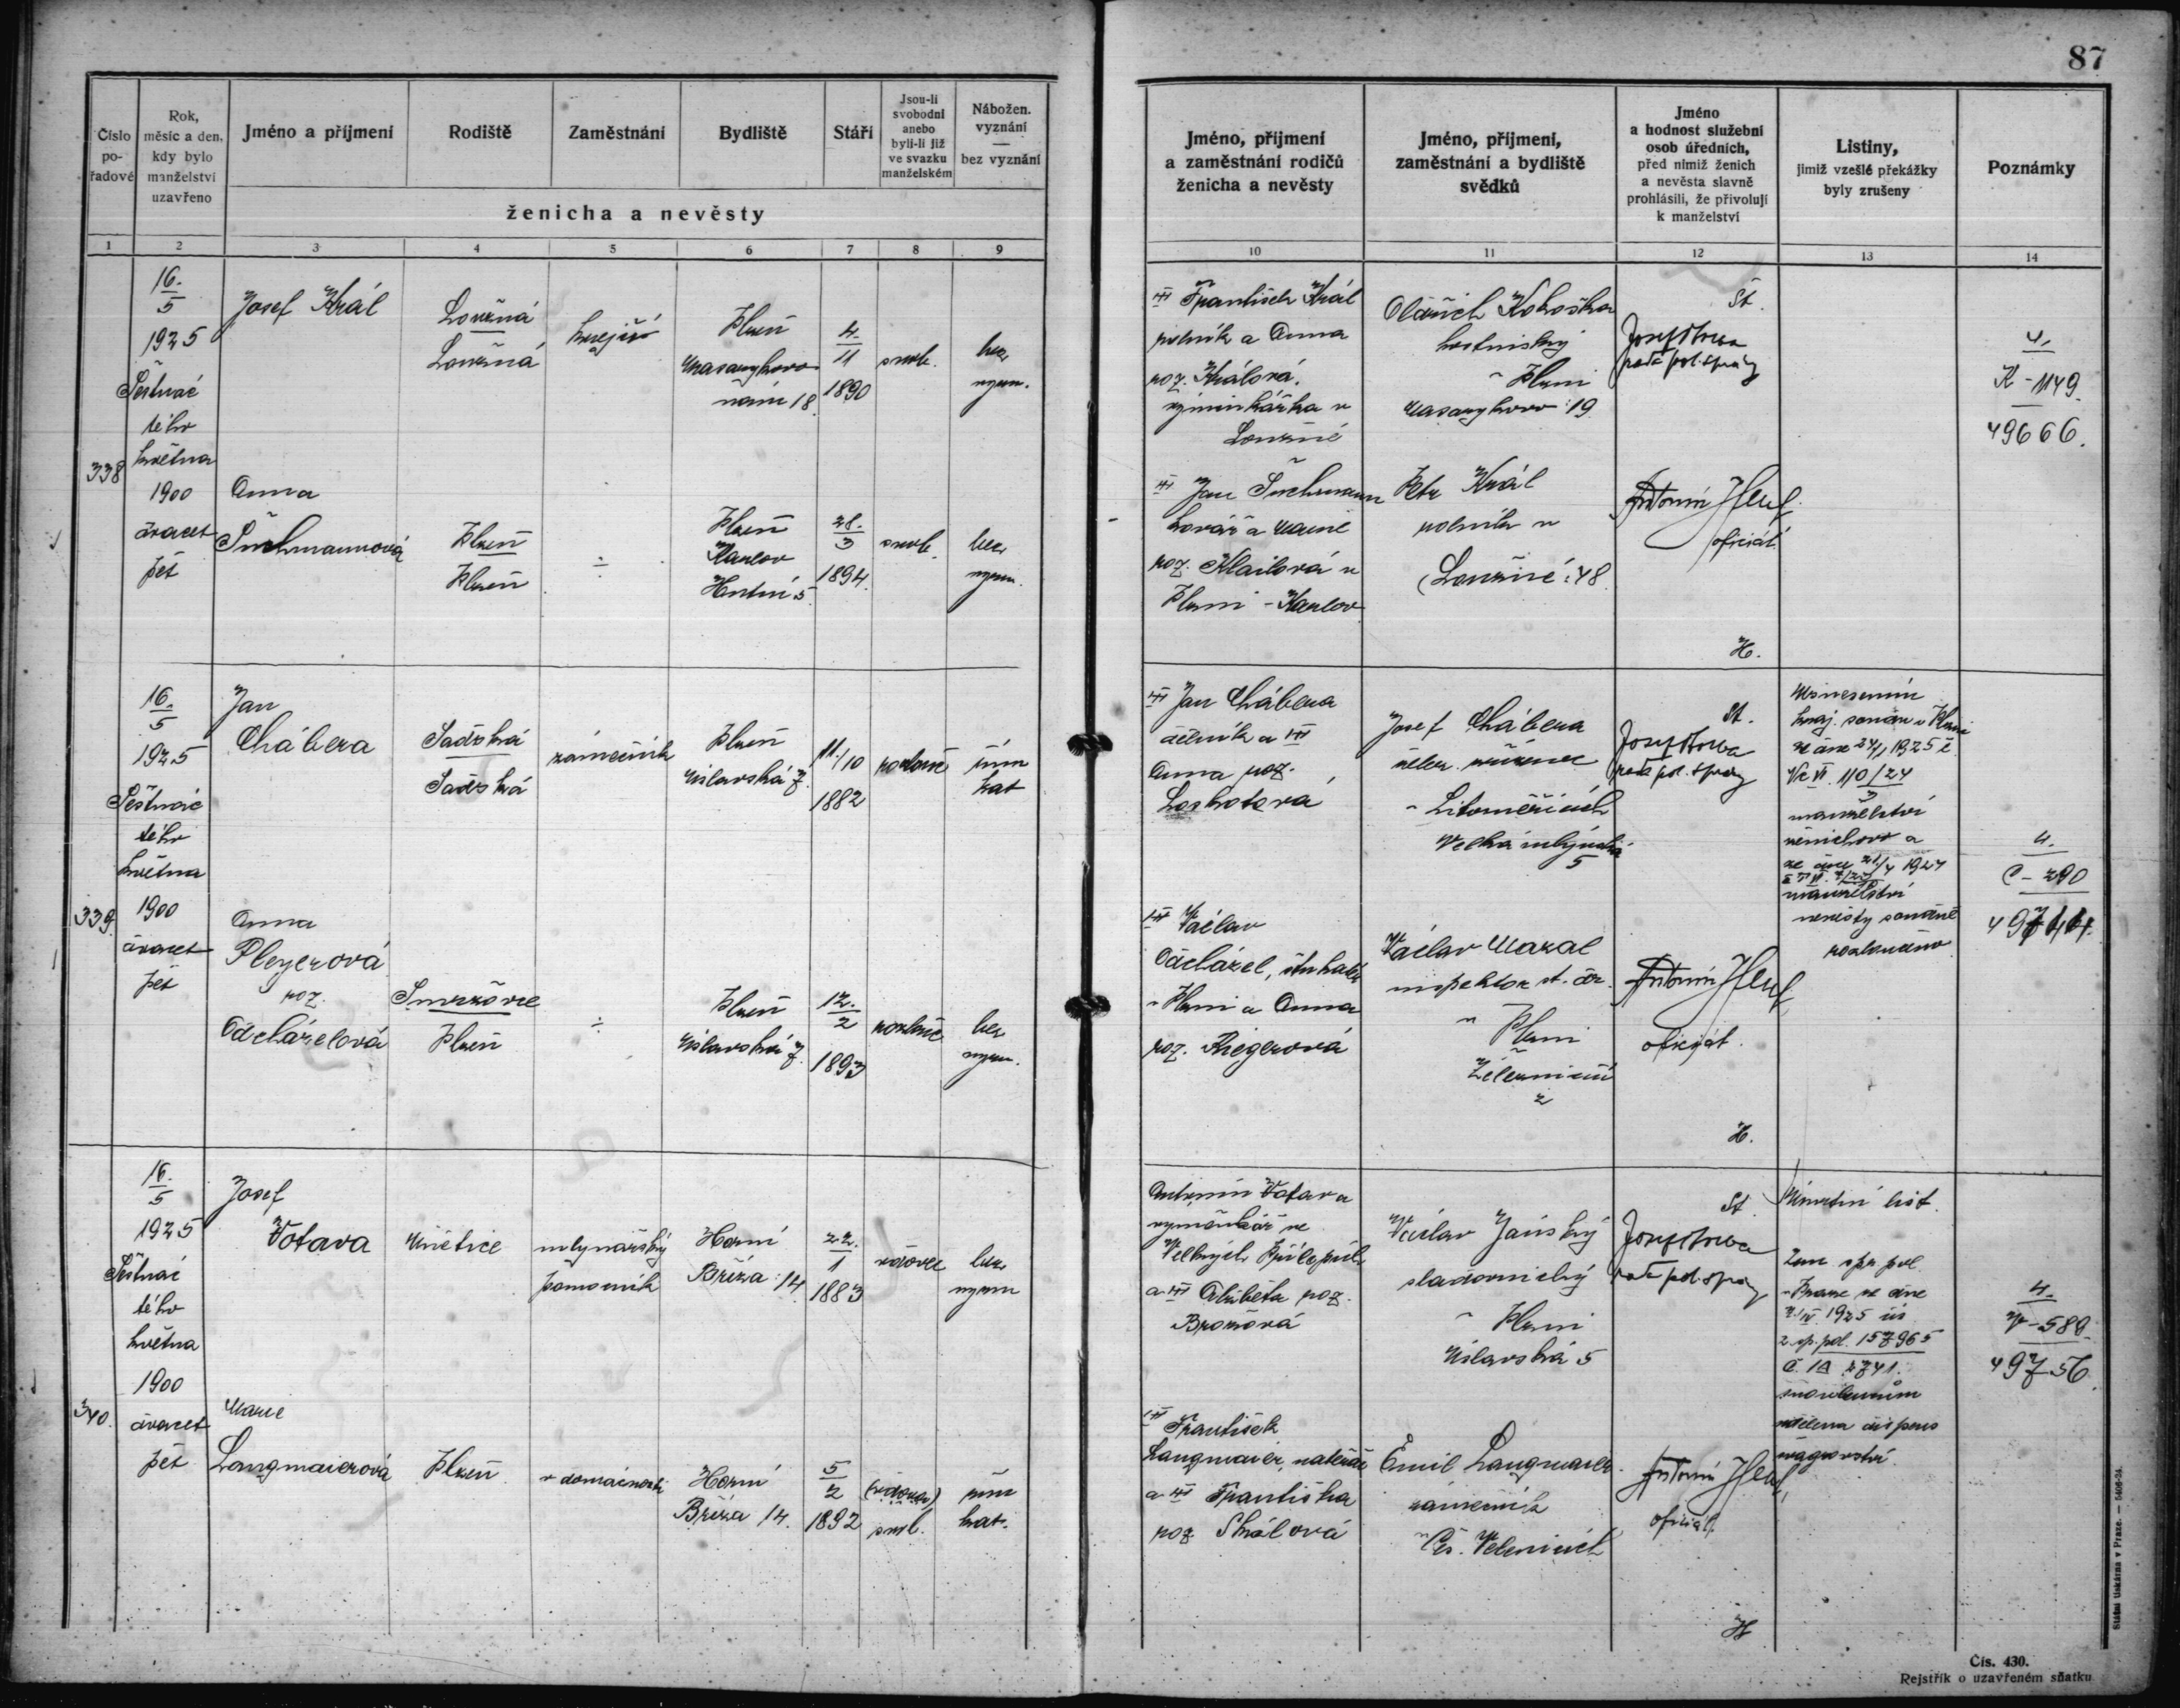 87
Číslo
po-
řadové
Rok,
měsíc a den,
kdy bylo
manželství
uzavřeno
Jméno a příjmení
Rodiště
Zaměstnání
Bydliště
Stáří
Jsou-li
svobodni
anebo
byli-li již
ve svazku
manželském
Nábožen.
vyznání
—
bez vyznání
ženicha a nevěsty
1 2 3 4 5 6 7 8 9
Jméno, příjmení
a zaměstnání rodičů
ženicha a nevěsty
Jméno, příjmení,
zaměstnání a bydliště
svědků
Jméno
a hodnost služební
osob úředních,
před nimiž ženich
a nevěsta slavně
prohlásili, že přivolují
k manželství
Listiny,
jimiž vzešlé překážky
byly zrušeny
Poznámky
10 11 12 13 14
338
16.
5
1925
Šestnác
tého
května
1900
dvacet
pět
Josef Král
Loužná
Loužná
krejčí
Plzeň
Masarykovo
nám 18.
4.
11
1890
svob.
bez
vyzn.
Anna
Šuchmannová
Plzeň
Plzeň
÷
Plzeň
Karlov
5.
28.
3
1894.
svob.
bez
vyzn.
František Král
rolník a Anna
roz. Králová.
výminkářka v
Loužné
Oldřich Kohoška
hostinský
v Plzni
Masarykovo 19.
St.
rada pol. správy
4.
K - 1149.
49666.
Jan Šuchmann
kovář a Marie
roz. Klailová v
Plzni - Karlov
Petr Král
rolník v
Loužné : 48.
Antonín
oficiál
H.
339.
16.
5
1925
Šestnác
tého
května
1900
dvacet
pět
Jan
Chábera
Sadská
Sadská
zámečník
Plzeň
Úslavská 7.
11./10
1882
rozlouč
řím
kat
Anna
Pleyerová
roz.
Odcházelová
Smržovice
Plzeň
÷
Plzeň
Úslavská 7.
12.
2
1893
rozlouč.
bez
vyzn.
Jan Chábera
dělník a
Anna roz.
Loskotová
Josef Chábera
želez. zřízenec
v Litoměřicích
Velká mlýnská
5
St.
rada pol. správy
Usnesením
kraj. soudu v Plzni
ze dne 24/1 1925 č.
110/24
3
manželství
ženichovo a
ze dne 21/4 1924
manželství
nevěsty soudně
rozloučeno
4.
C - 290
Václav
Odcházel,
v Plzni a Anna
roz. Riegerová
Václav Mazal
inspektor st. dr.
v Plzni
Železniční
2
Antonín
oficiál.
H.
340.
16.
5
1925
Šestnác
tého
května
1900
dvacet
pět
Josef
Votava
Únětice
mlynářský
pomocník
Horní
Bříza : 14.
22.
1
1883
vdovec
bez
vyzn
Marie
Langmaierová
Plzeň
v domácnosti
Horní
Bříza 14.
5
2
1892
(vdova)
svob.
řím
kat.
Antonín Votava
výměnkář ve
Velkých Přílepích
a Alžběta roz.
Brožová
Václav Janský
sladovnický
v Plzni
Úslavská 5
St
rada pol. správy
Úmrtní list.
Zem. spr. pol.
v Praze ze dne
1925 čís
z. sp. pol. 157965
udělena dispens
švagrovství.
4.
V - 589.
49756
František
Langmaier,
a Františka
roz Skálová
Emil Langmaier
zámečník
v Čes. Velenicích
Antonín
oficiál.
H
Státní tiskárna v Praze. — 5406-24.
Čís. 430.
Rejstřík o uzavřeném sňatku